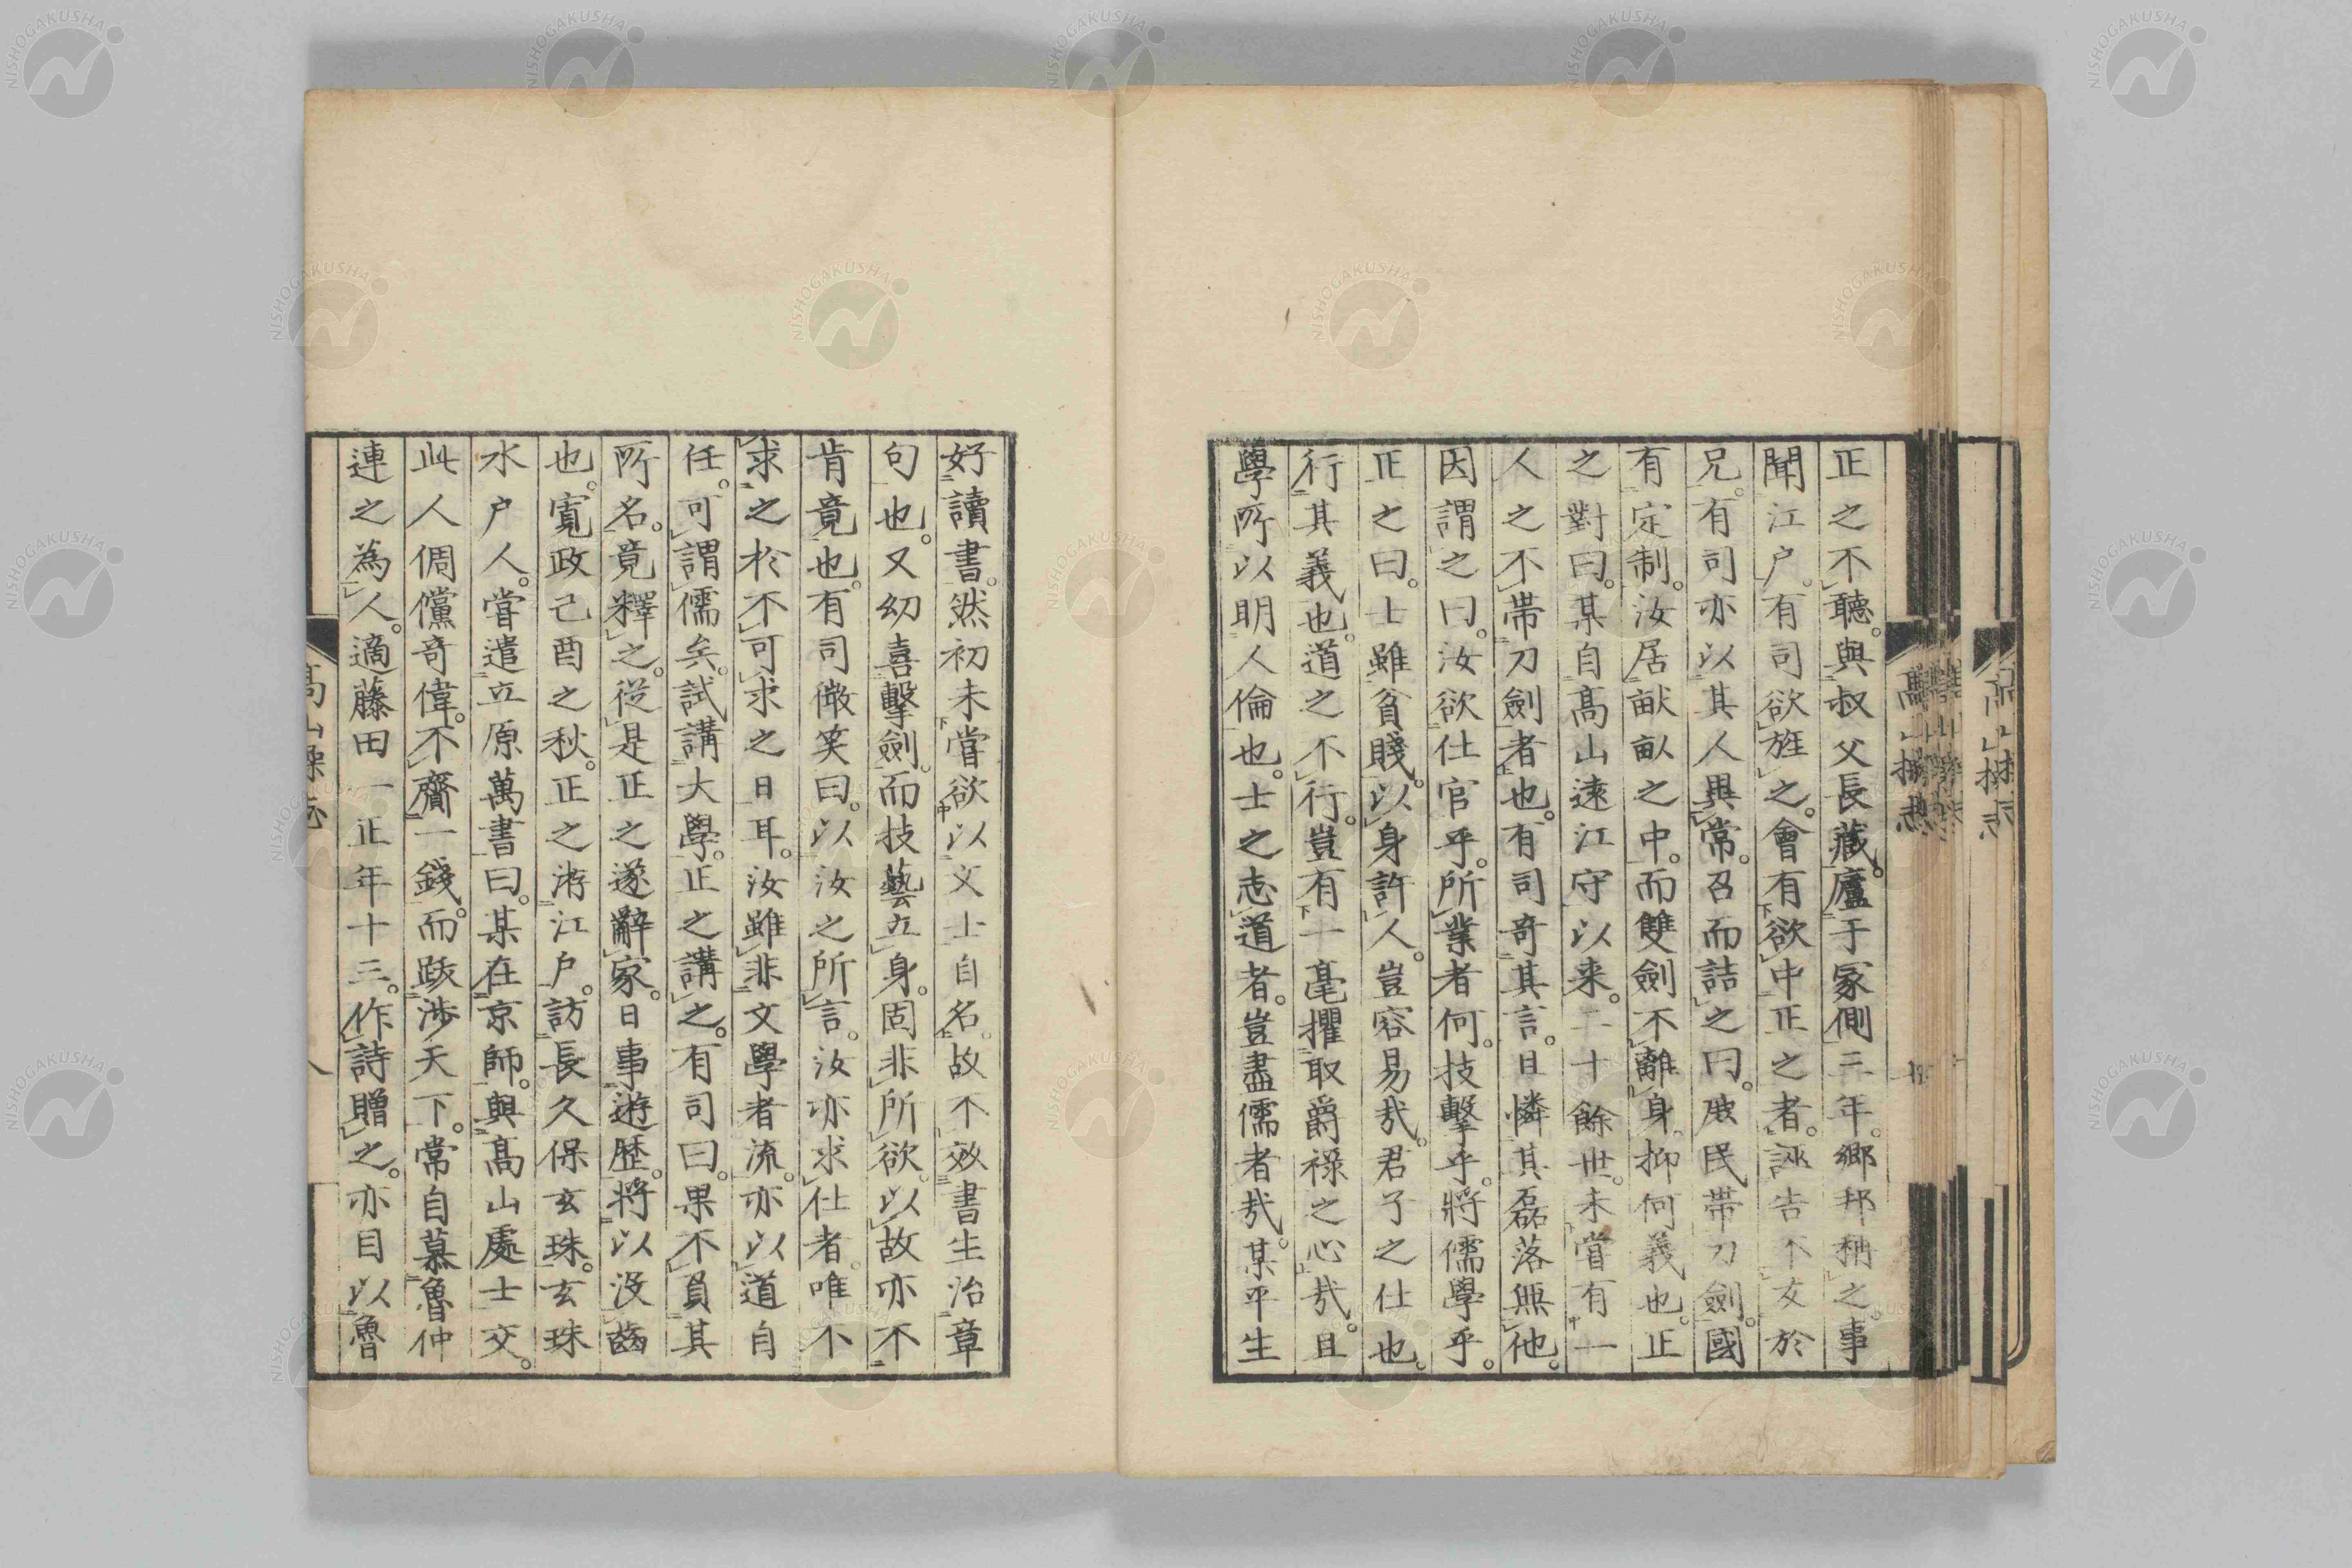 正之不聽。與叔父長藏。廬于冢側三年。鄉邦稱之。事
聞江户。有司欲旌之。會有欲中正之者。誣告不友於
兄。有司亦以其人異常。召而詰之曰。庶民帶刀劍。國
有定制。汝居畎畝之中。而雙劍不離身。抑何義也。正
之對曰。某自高山遠江守以来。二十餘世。未嘗有一
人之不帶刀劍者也。有司奇其言。且憐其磊落無他。
因謂之曰。汝欲仕官乎。所業者何。技擊乎。將儒學乎。
正之曰。士雖貧賤。以身許人。豈容易㢤。君子之仕也。
行其義也。道之不行。豈有一毫攫取爵禄之心㢤。且
學所以明人倫也。士之志道者。豈盡儒者㢤。某平生
好讀書。然初未嘗欲以文士自名。故不效書生治章
句也。又幼喜擊劍。而技藝立身。固非所欲。以故亦不
肯竟也。有司微笑曰。以汝之所言。汝亦求仕者。唯不
求之於不可求之日耳。汝雖非文學者流。亦以道自
任。可謂儒矣。試講大學。正之講之。有司曰。果不負其
所名。竟釋之。從是正之遂辭家。日事遊歷。將以没齒
也。寬政己酉之秋。正之游江户。訪長久保玄珠。玄珠
水户人。嘗遣立原萬書曰。某在京師。與高山處士交。
此人倜儻奇偉。不齎一錢。而跋涉天下。常自慕魯仲
連之為人。適藤田一正年十三。作詩贈之。亦目以魯
高山操志
八
NISHOGAKUSHA